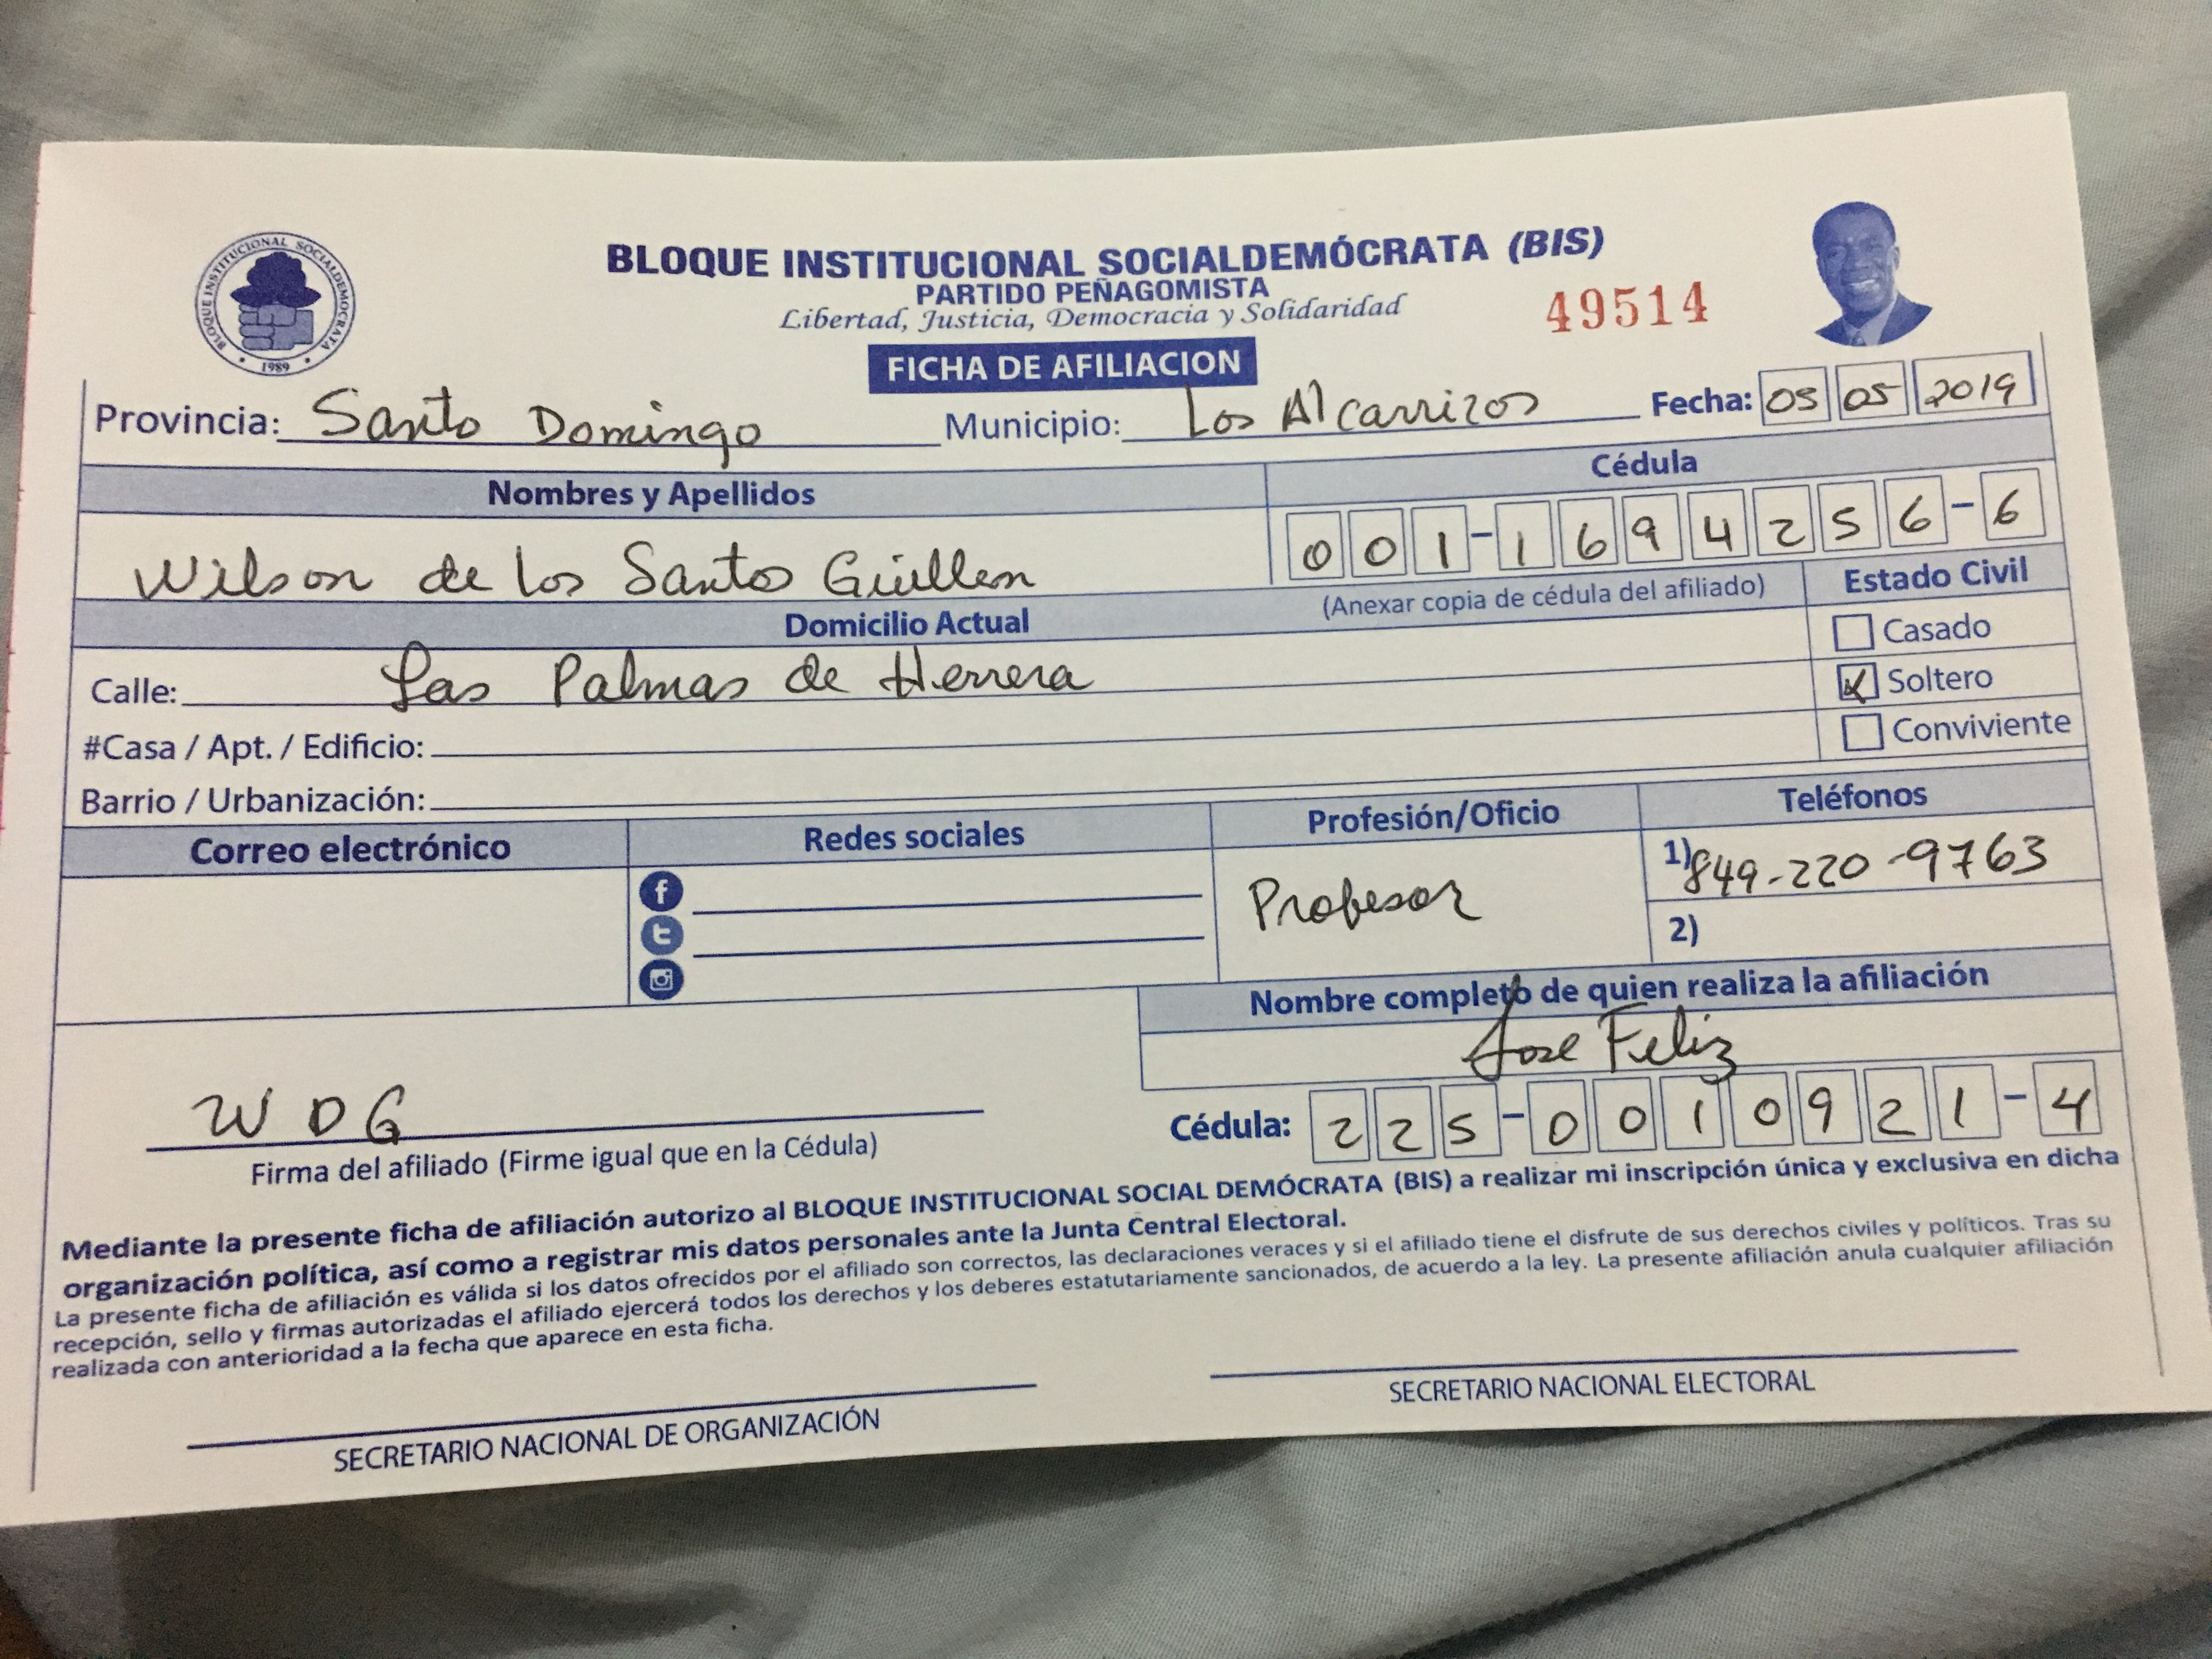 BLOQUE INSTITUCIONAL SOCIALDEMOCRATA
1989
BLOQUE INSTITUCIONAL SOCIALDEMÓCRATA (BIS)
PARTIDO PEÑAGOMISTA
Libertad, Justicia, Democracia y Solidaridad
49514
FICHA DE AFILIACION
Provincia: Santo Domingo Municipio: Los Alcarrizos Fecha: 05 05 2019
Nombres y Apellidos Cédula
Wilson de los Santos Guillen 001-1694256-6
Domicilio Actual (Anexar copia de cédula del afiliado) Estado Civil
Casado
Calle: Las Palmas de Herrera Soltero
#Casa / Apt. / Edificio: Conviviente
Barrio / Urbanización:
Correo electrónico Redes sociales Profesión/Oficio Teléfonos
Profesor 1) 849-220-9763
2)
Nombre completo de quien realiza la afiliación
Jose Feliz
WDG Cédula: 225-0010921-4
Firma del afiliado (Firme igual que en la Cédula)
Mediante la presente ficha de afiliación autorizo al BLOQUE INSTITUCIONAL SOCIAL DEMÓCRATA (BIS) a realizar mi inscripción única y exclusiva en dicha
organización política, así como a registrar mis datos personales ante la Junta Central Electoral.
La presente ficha de afiliación es válida si los datos ofrecidos por el afiliado son correctos, las declaraciones veraces y si el afiliado tiene el disfrute de sus derechos civiles y políticos. Tras su
recepción, sello y firmas autorizadas el afiliado ejercerá todos los derechos y los deberes estatutariamente sancionados, de acuerdo a la ley. La presente afiliación anula cualquier afiliación
realizada con anterioridad a la fecha que aparece en esta ficha.
SECRETARIO NACIONAL DE ORGANIZACIÓN SECRETARIO NACIONAL ELECTORAL